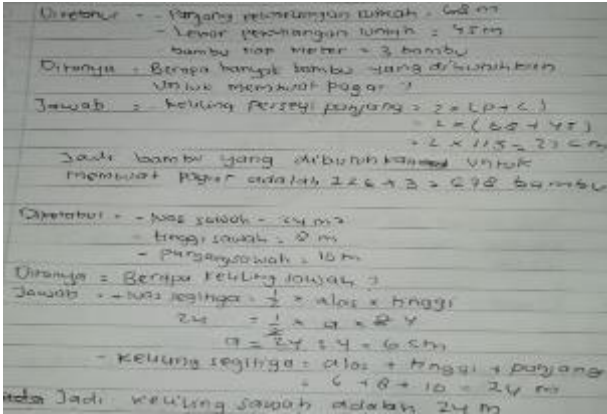 Diketahui - - Panjang perkelingan rumah = 68 m
- Lebar perkelingan rumah = 45 m
bambu tiap meter = 3 bambu
Ditanya = Berapa banyak bambu yang dibutuhkan
untuk membuat pagar ?
Jawab = - keliling persegi panjang = 2 x (p + l)
= 2 x (68 + 45)
= 2 x 113 = 226 m
Jadi bambu yang dibutuhkan untuk
membuat pagar adalah 226 x 3 = 678 bambu
Diketahui - - luas sawah = 24 m²
- tinggi sawah = 8 m
- panjang sawah = 10 m
Ditanya = Berapa keliling sawah ?
Jawab = - luas segitiga = 1/2 x alas x tinggi
24 = 1/2 x a x 8 4
a = 24 : 4 = 6 cm
- Keliling segitiga = alas + tinggi + panjang
= 6 + 8 + 10 = 24 m
Jadi keliling sawah adalah 24 m